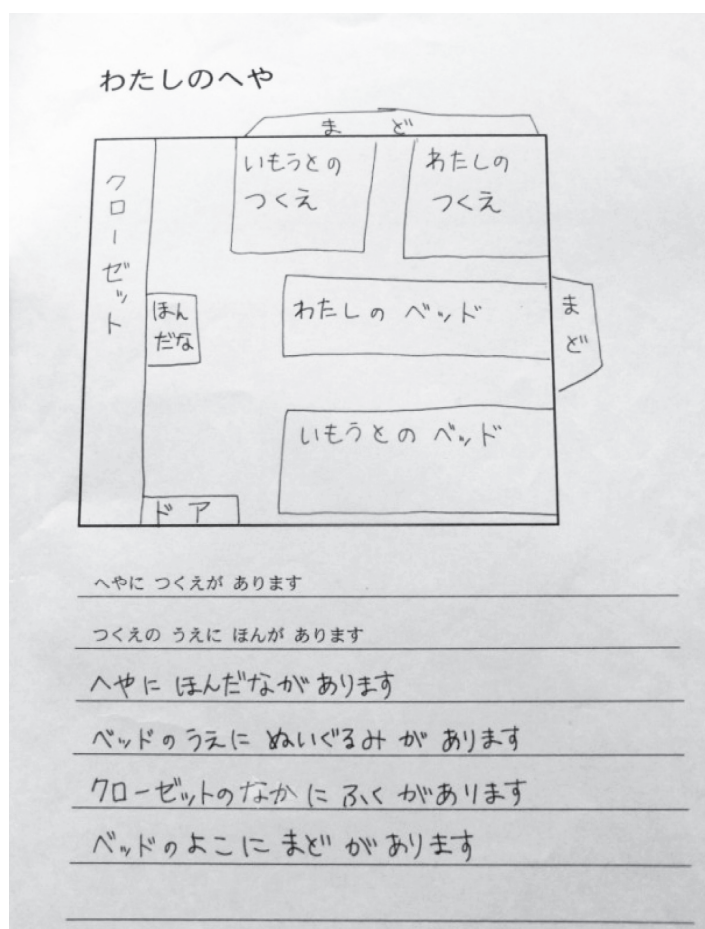 わたしのへや
まど
いもうとの
つくえ
わたしの
つくえ
クローゼット
ほん
だな
わたしの ベッド
まど
いもうとの ベッド
ドア
へやに つくえが あります
つくえの うえに ほんが あります
へやに ほんだながあります
ベッドのうえに ぬいぐるみ が あります
クローゼットのなか に ふく があります
ベッドのよこに まど があります